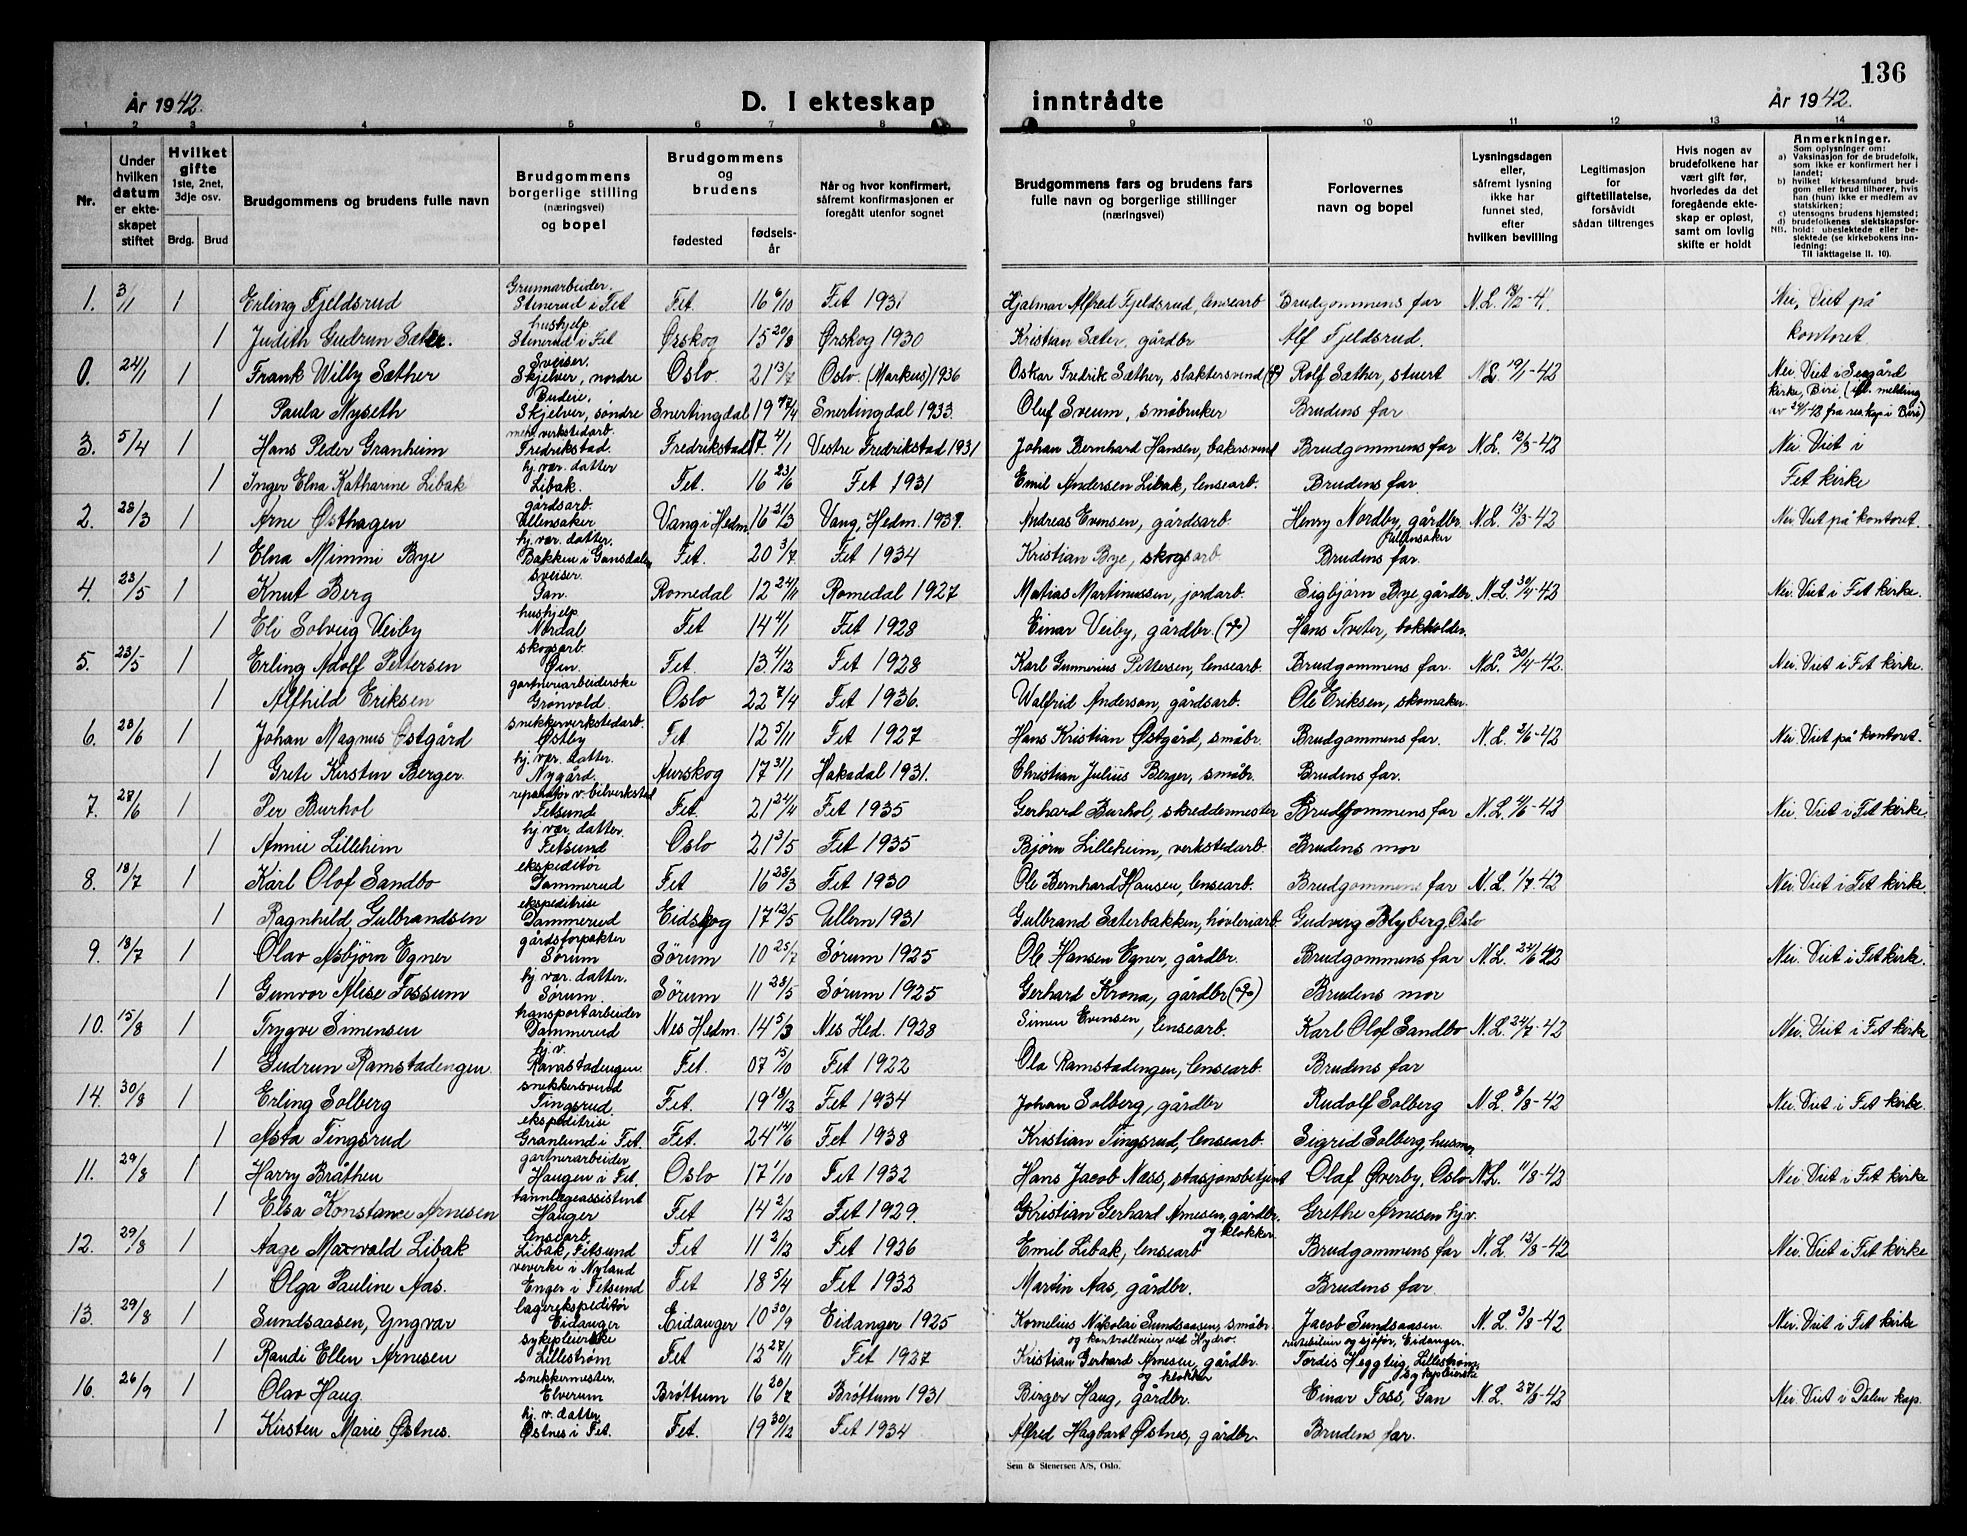 136
År 1942. D. I ekteskap inntrådte År 1942.
1 2 3 4 5 6 7 8 9 10 11 12 13 14
Nr.
Under hvilken datum er ekteskapet stiftet
Hvilket gifte 1ste, 2net, 3dje osv.
Brdg. Brud
Brudgommens og brudens fulle navn
Brudgommens borgerlige stilling (næringsvei) og bopel
Brudgommens og brudens
fødested fødselsår
Når og hvor konfirmert, såfremt konfirmasjonen er foregått utenfor sognet
Brudgommens fars og brudens fars fulle navn og borgerlige stillinger (næringsvei)
Forlovernes navn og bopel
Lysningsdagen eller, såfremt lysning ikke har funnet sted, efter hvilken bevilling
Legitimasjon for giftetillatelse, forsåvidt sådan tiltrenges
Hvis nogen av brudefolkene har vært gift før, hvorledes da det foregående ekteskap er opløst, samt om lovlig skifte er holdt
Anmerkninger.
Som oplysninger om:
a) Vaksinasjon for de brudefolk, som ikke er konfirmert her i landet;
b) hvilket kirkesamfund brudgom eller brud tilhører, hvis han (hun) ikke er medlem av statskirken;
c) utensogns brudens hjemsted;
d) brudefolkenes slektskapsforhold: ubeslektede eller beslektede (se kirkebokens innledning:
NB. Til iakttagelse II. 10).
1. 3/1 1 Erling Fjeldsrud Grunnarbeider. Stenerud i Fet Fet. 16 6/10 Fet 1931 Hjalmar Alfred Fjeldsrud, lensearb Brudgommens far N.L. Nei, Viet på
1 Judith Gudrun Sæter. hushjelp Stenerud i Fet Ørskog 15 20/8 Ørskog 1930 Kristian Sæter, gårdbr Alf Fjeldsrud. kontoret.
0. 24/1 1 Frank Willy Sæther Sveiser. Skjelver, nordre Oslo. 21 13/7 Oslo. (Markus) 1936 Oskar Fredrik Sæther, slaktersvend Rolf Sæther, stuert N.L. 19/1-42 Nei. Viet i Seegård
1 Paula Nyseth Budeie. Skjelver, søndre Snertingdal 19 Snertingdal 1933. Oluf Sveum, småbruker Brudens far kirke, Biri
3. 5/4 1 Hans Peder Granheim mek. verkstedarb. Fredrikstad. Fredrikstad 17 4/1 Vestre Fredrikstad 1931 Johan Bernhard Hansen, bakersvend Brudgommens far N.L. 12/3-42 Nei. Viet i
1 Inger Elna Katharine Libak hj. vær. datter Libak. Fet. 16 23/6 Fet 1931 Emil Andersen Libak, lensearb. Brudens far Fet kirke
2. 28/3 1 Arne Østhagen gårdsarb. Ullensaker Vang i Hedm. 16 21/3 Vang, Hedm. 1931. Andreas Evensen, gårdsarb. Henry Nordby, gårdbr. Ullensaker N.L. 13/3-42 Nei. Viet på kontoret.
1 Elna Mimmi Bye hj. vær. datter. Bakken i Gansdalen Fet. 20 3/7 Fet 1934 Kristian Bye, skogsarb Brudens far.
4. 23/5 1 Knut Berg sveiser. Gan. Romedal 12 24/11 Romedal 1927 Matias Martinussen, jordarb. Sigbjørn Bye, gårdbr. N.L. 30/4-42 Nei. Viet i Fet kirke.
1 Eli Solveig Veiby hushjelp Nordal Fet 14 4/1 Fet 1928 Einar Veiby, gårdbr. Hans Tveter, bokholder.
5. 23/5 1 Erling Adolf Pettersen skogsarb. Øin. Fet 13 4/12 Fet 1928 Karl Gunnerius Pettersen, lensearb. Brudgommens far. N.L. 30/4-42. Nei. Viet i Fet kirke.
1 Alfhild Eriksen gartneriarbeiderske Grønvold. Oslo 22 7/4 Fet 1936. Walfrid Anderson, gårdsarb. Ole Eriksen, skomaker.
6. 28/6 1 Johan Magnus Østgård snekkerverkstedarb. Østby Fet. 12 5/11 Fet 1927 Hans Kristian Østgård, småbr. Brudgommens far. N.L. 2/6-42 Nei. Viet på kontoret.
1 Grete Kirsten Berger hj. vær. datter. Nygård. Aurskog 17 31/1 Hakadal 1931. Christian Julius Berger, småbr. Brudens far.
7. 28/6 1 Per Burhol reparatør v. bilverksted Fetsund Fet. 21 24/4 Fet 1935 Gerhard Burhol, skreddermester Brudgommens far N.L. 4/6-42 Nei. Viet i Fet kirke.
1 Annie Lilleheim hj. vær. datter. Fetsund Oslo 21 3/5 Fet 1935 Bjørn Lilleheim, verkstedarb. Brudens mor
8. 18/7 1 Karl Olof Sandbo ekspeditør Dammerud Fet 16 25/3 Fet 1930 Ole Bernhard Hansen, lensearb. Brudgommens far N.L. 1/7-42 Nei. Viet i Fet kirke.
1 Ragnhild Gulbrandsen ekspeditrise Dammerud Eidskog 17 13/5 Ullern 1931 Gulbrand Sæterbakken, høvleriarb. Gudveig Blyberg, Oslo
9. 18/7 1 Olav Asbjørn Egner gårdsforpakter Sørum Sørum 10 25/7 Sørum 1925 Ole Hansen Egner, gårdbr. Brudgommens far N.L. 24/6-42 Nei. Viet i Fet kirke.
1 Gunvor Alise Fossum hj. vær. datter. Sørum. Sørum 11 28/5 Sørum 1925 Gerhard Krona, gårdbr Brudens mor
10. 15/8 1 Trygve Simensen transportarbeider Dammerud Nes Hedm. 14 5/3 Nes Hed. 1928 Simen Evensen, lensearb. Karl Olof Sandbo N.L. 24/7-42 Nei. Viet i Fet kirke
1 Gudrun Ramstadengen. hj. v. Ramstadengen. Fet. 07 15/10 Fet 1922 Ola Ramstadengen, lensearb. Brudens far
14. 30/8 1 Erling Solberg snekkersvend Tingsrud. Fet. 19 18/12 Fet 1934 Johan Solberg, gårdbr Rudolf Solberg N.L. 8/8-42 Nei. Viet i Fet kirke.
1 Asta Tingsrud ekspeditrise Granlund i Fet. Fet. 24 14/6 Fet 1938 Kristian Tingsrud, lensearb. Sigrid Solberg, husmor
11. 29/8 1 Harry Bråthen gartnerarbeider Haugen i Fet. Oslo 17 1/10 Fet 1932 Hans Jacob Næss, stasjonsbetjent Olaf Øverby, Oslo N.L. 11/8-42 Nei. Viet i Fet kirke
1 Elsa Konstance Arnesen tannlægeassistent Hauger Fet 14 2/12 Fet 1929. Kristian Gerhard Arnesen, gårdbr. og klokker Grethe Arnesen hj.v.
12. 29/8 1 Aage Maxwald Libak lensearb. Libak, Fetsund Fet 11 2/12 Fet 1926 Emil Libak, lensearb Brudgommens far N.L. 13/8-42 Nei. Viet i Fet kirke
1 Olga Pauline Aas. veverke i Nyland Enger i Fetsund Fet 18 5/4 Fet 1932 Martin Aas, gårdbr. Brudens far.
13. 29/8 1 Sundsaasen, Yngvar lagerekspeditør Eidanger Eidanger 10 30/9 Eidanger 1925 Kornelius Nikolai Sundsaasen, småbr. og kontrollveier ved Hydro. Jacob Sundsaasen. rutebileier og sjåfør, Eidanger. N.L. 3/8-42 Nei. Viet i Fet kirke
1 Randi Ellen Arnesen sykepleierske Lillestrøm Fet 12 27/11 Fet 1927 Kristian Gerhard Arnesen, gårdbr. og klokker Tordis Heggtig, Lillestrøm, sykepleierske
16. 26/9 1 Olav Haug. snekkermester. Elverum Brøttum 16 20/7 Brøttum 1931 Birger Haug, gårdbr. Einar Foss, Gan N.L. 27/8-42 Nei. Viet i Dalen kap.
1 Kirsten Marie Østnes. hj. v. datter Østnes i Fet. Fet. 19 30/12 Fet 1934 Alfred Hagbart Østnes, gårdbr. Brudens far.
Sem & Stenersen A/S, Oslo.